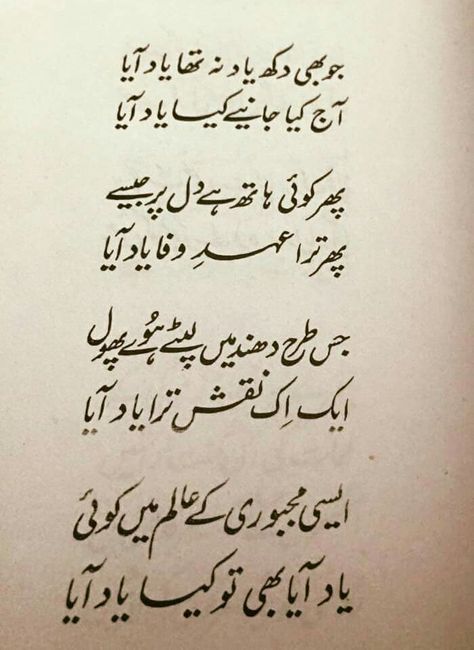 جو بھی دکھ یاد نہ تھا یاد آیا
آج کیا جانیے کیا یاد آیا
پھر کوئی ہاتھ ہے دل پر جیسے
پھر ترا عہدِ وفا یاد آیا
جس طرح دھند میں لپٹے ہوئے پھول
ایک اِک نقش ترا یاد آیا
ایسی مجبوری کے عالم میں کوئی
یاد آیا بھی تو کیا یاد آیا